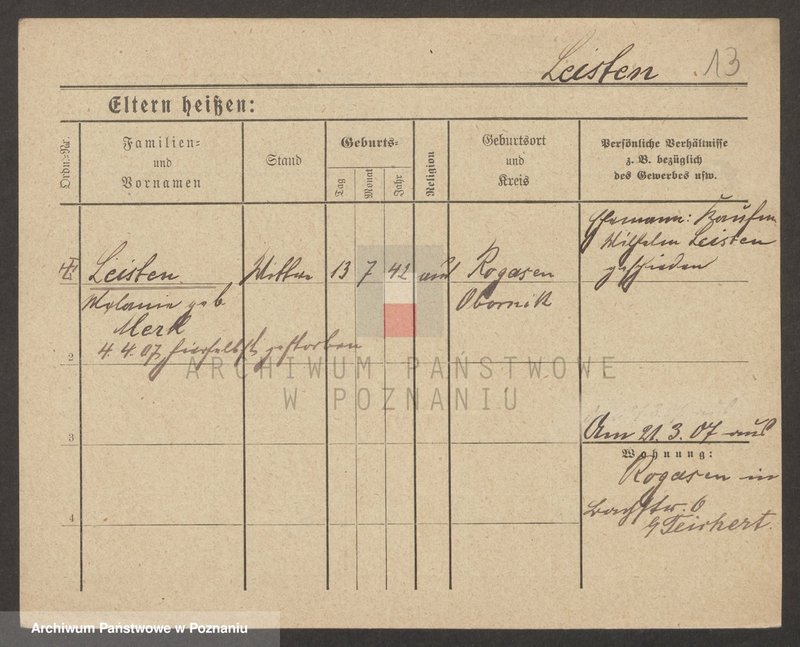 Leisten 13
Eltern heißen:
Ordn.-Nr.
Familien-
und
Vornamen
Stand
Geburts-
Tag
Monat
Jahr
Religion
Geburtsort
und
Kreis
Persönliche Verhältnisse
z. B. bezüglich
des Gewerbes usw.
Ehemann: Kaufm
Wilhelm Leisten
geschieden
Leisten Witwe 13 7 42 Rogasen
Melanie geb Obornik
Merk
4. 4. 07 hierselbst gestorben
2
ARCHIWUM PAŃSTWOWE
W POZNANIU
3
Am 21. 3. 07 aus
Wohnung:
Rogasen in
6
4
Teichert.
Archiwum Państwowe w Poznaniu